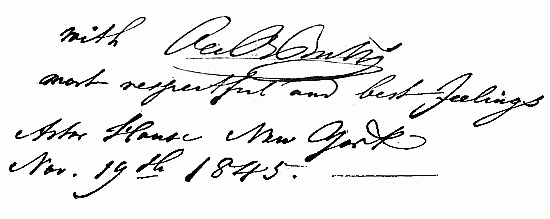 with
most respectful and best feelings
Astor House New York
Nov. 19th 1845.